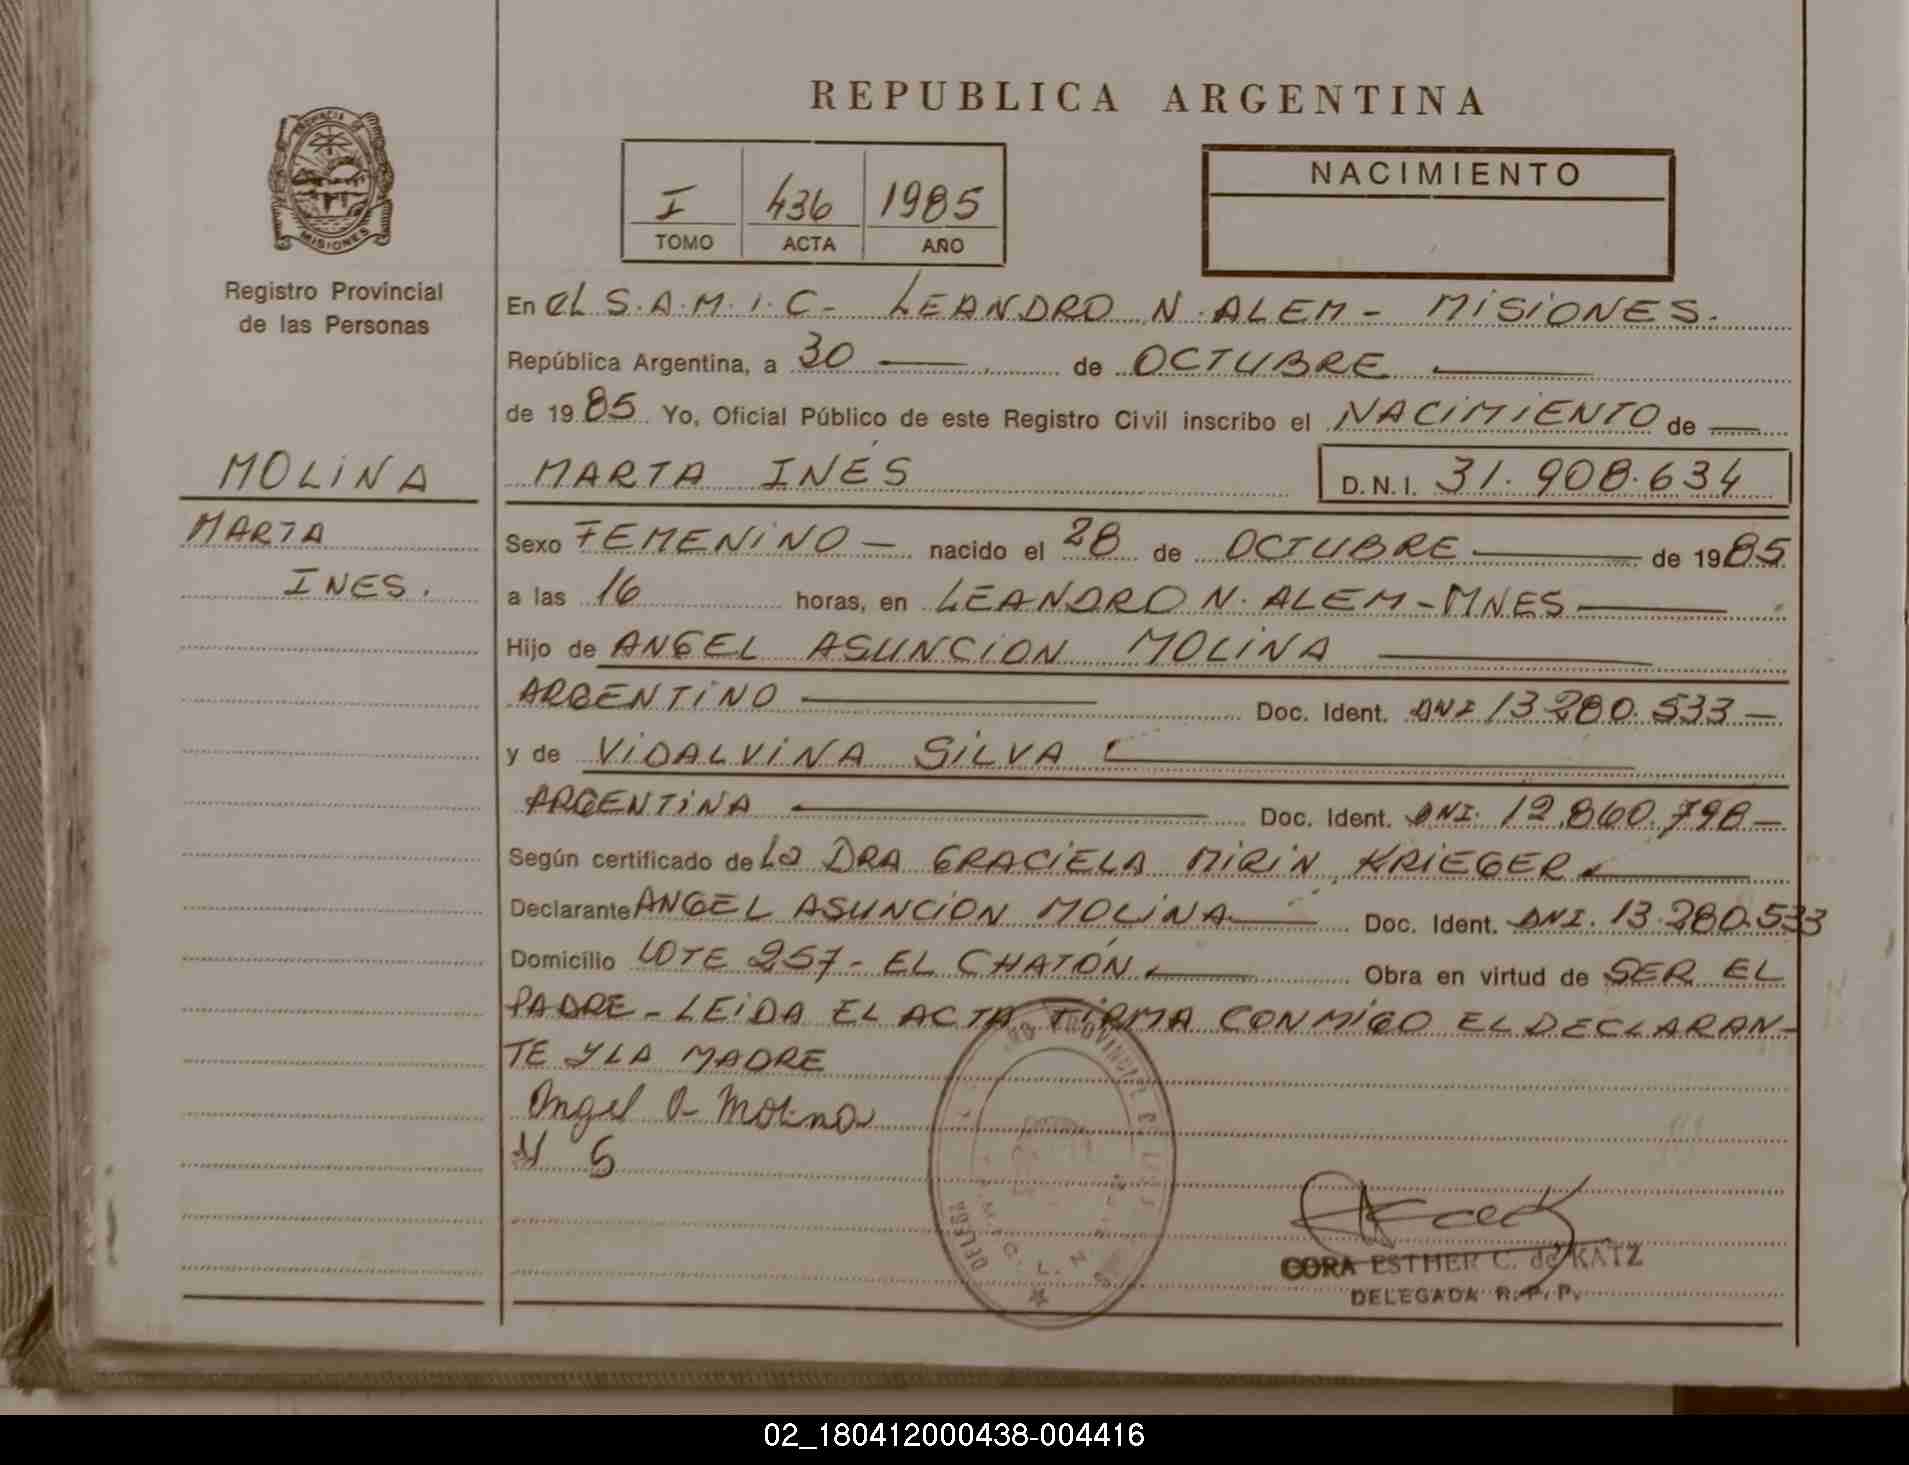 REPUBLICA ARGENTINA
PROVINCIA DE
MISIONES
Registro Provincial
de las Personas
I 436 1985
TOMO ACTA AÑO
NACIMIENTO
En el S.A.M.I.C- LEANDRO N. ALEM - MISIONES.
República Argentina, a 30 de OCTUBRE
de 1985 Yo, Oficial Público de este Registro Civil inscribo el NACIMIENTO de
MOLINA
MARTA
INES.
MARTA INÉS D.N.I. 31.908.634
Sexo FEMENINO - nacido el 28 de OCTUBRE de 1985
a las 16 horas, en LEANDRO N. ALEM - MNES
Hijo de ANGEL ASUNCION MOLINA
ARGENTINO Doc. Ident. DNI 13 280.533 -
y de VIDALVINA SILVA
ARGENTINA Doc. Ident. DNI. 12.860.798 -
Según certificado de La DRA GRACIELA MIRIN KRIEGER
Declarante ANGEL ASUNCION MOLINA Doc. Ident. DNI. 13.280.533
Domicilio LOTE 257 - EL CHATÓN Obra en virtud de SER EL
PADRE - LEIDA EL ACTA FIRMA CONMIGO EL DECLARAN-
TE Y LA MADRE
Angel A Molina
V S
CORA ESTHER C. de KATZ
DELEGADA R.P.P.
02_180412000438-004416